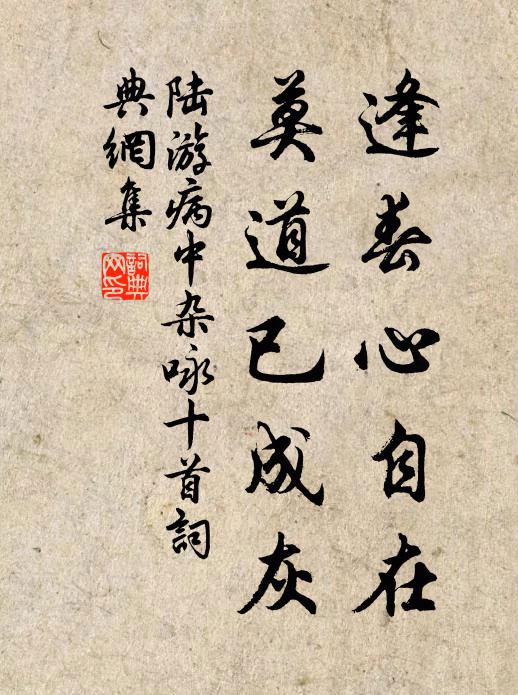 逢春心自在
莫道已成灰
陆游病中杂咏十首詞
典網集
詞典
网印